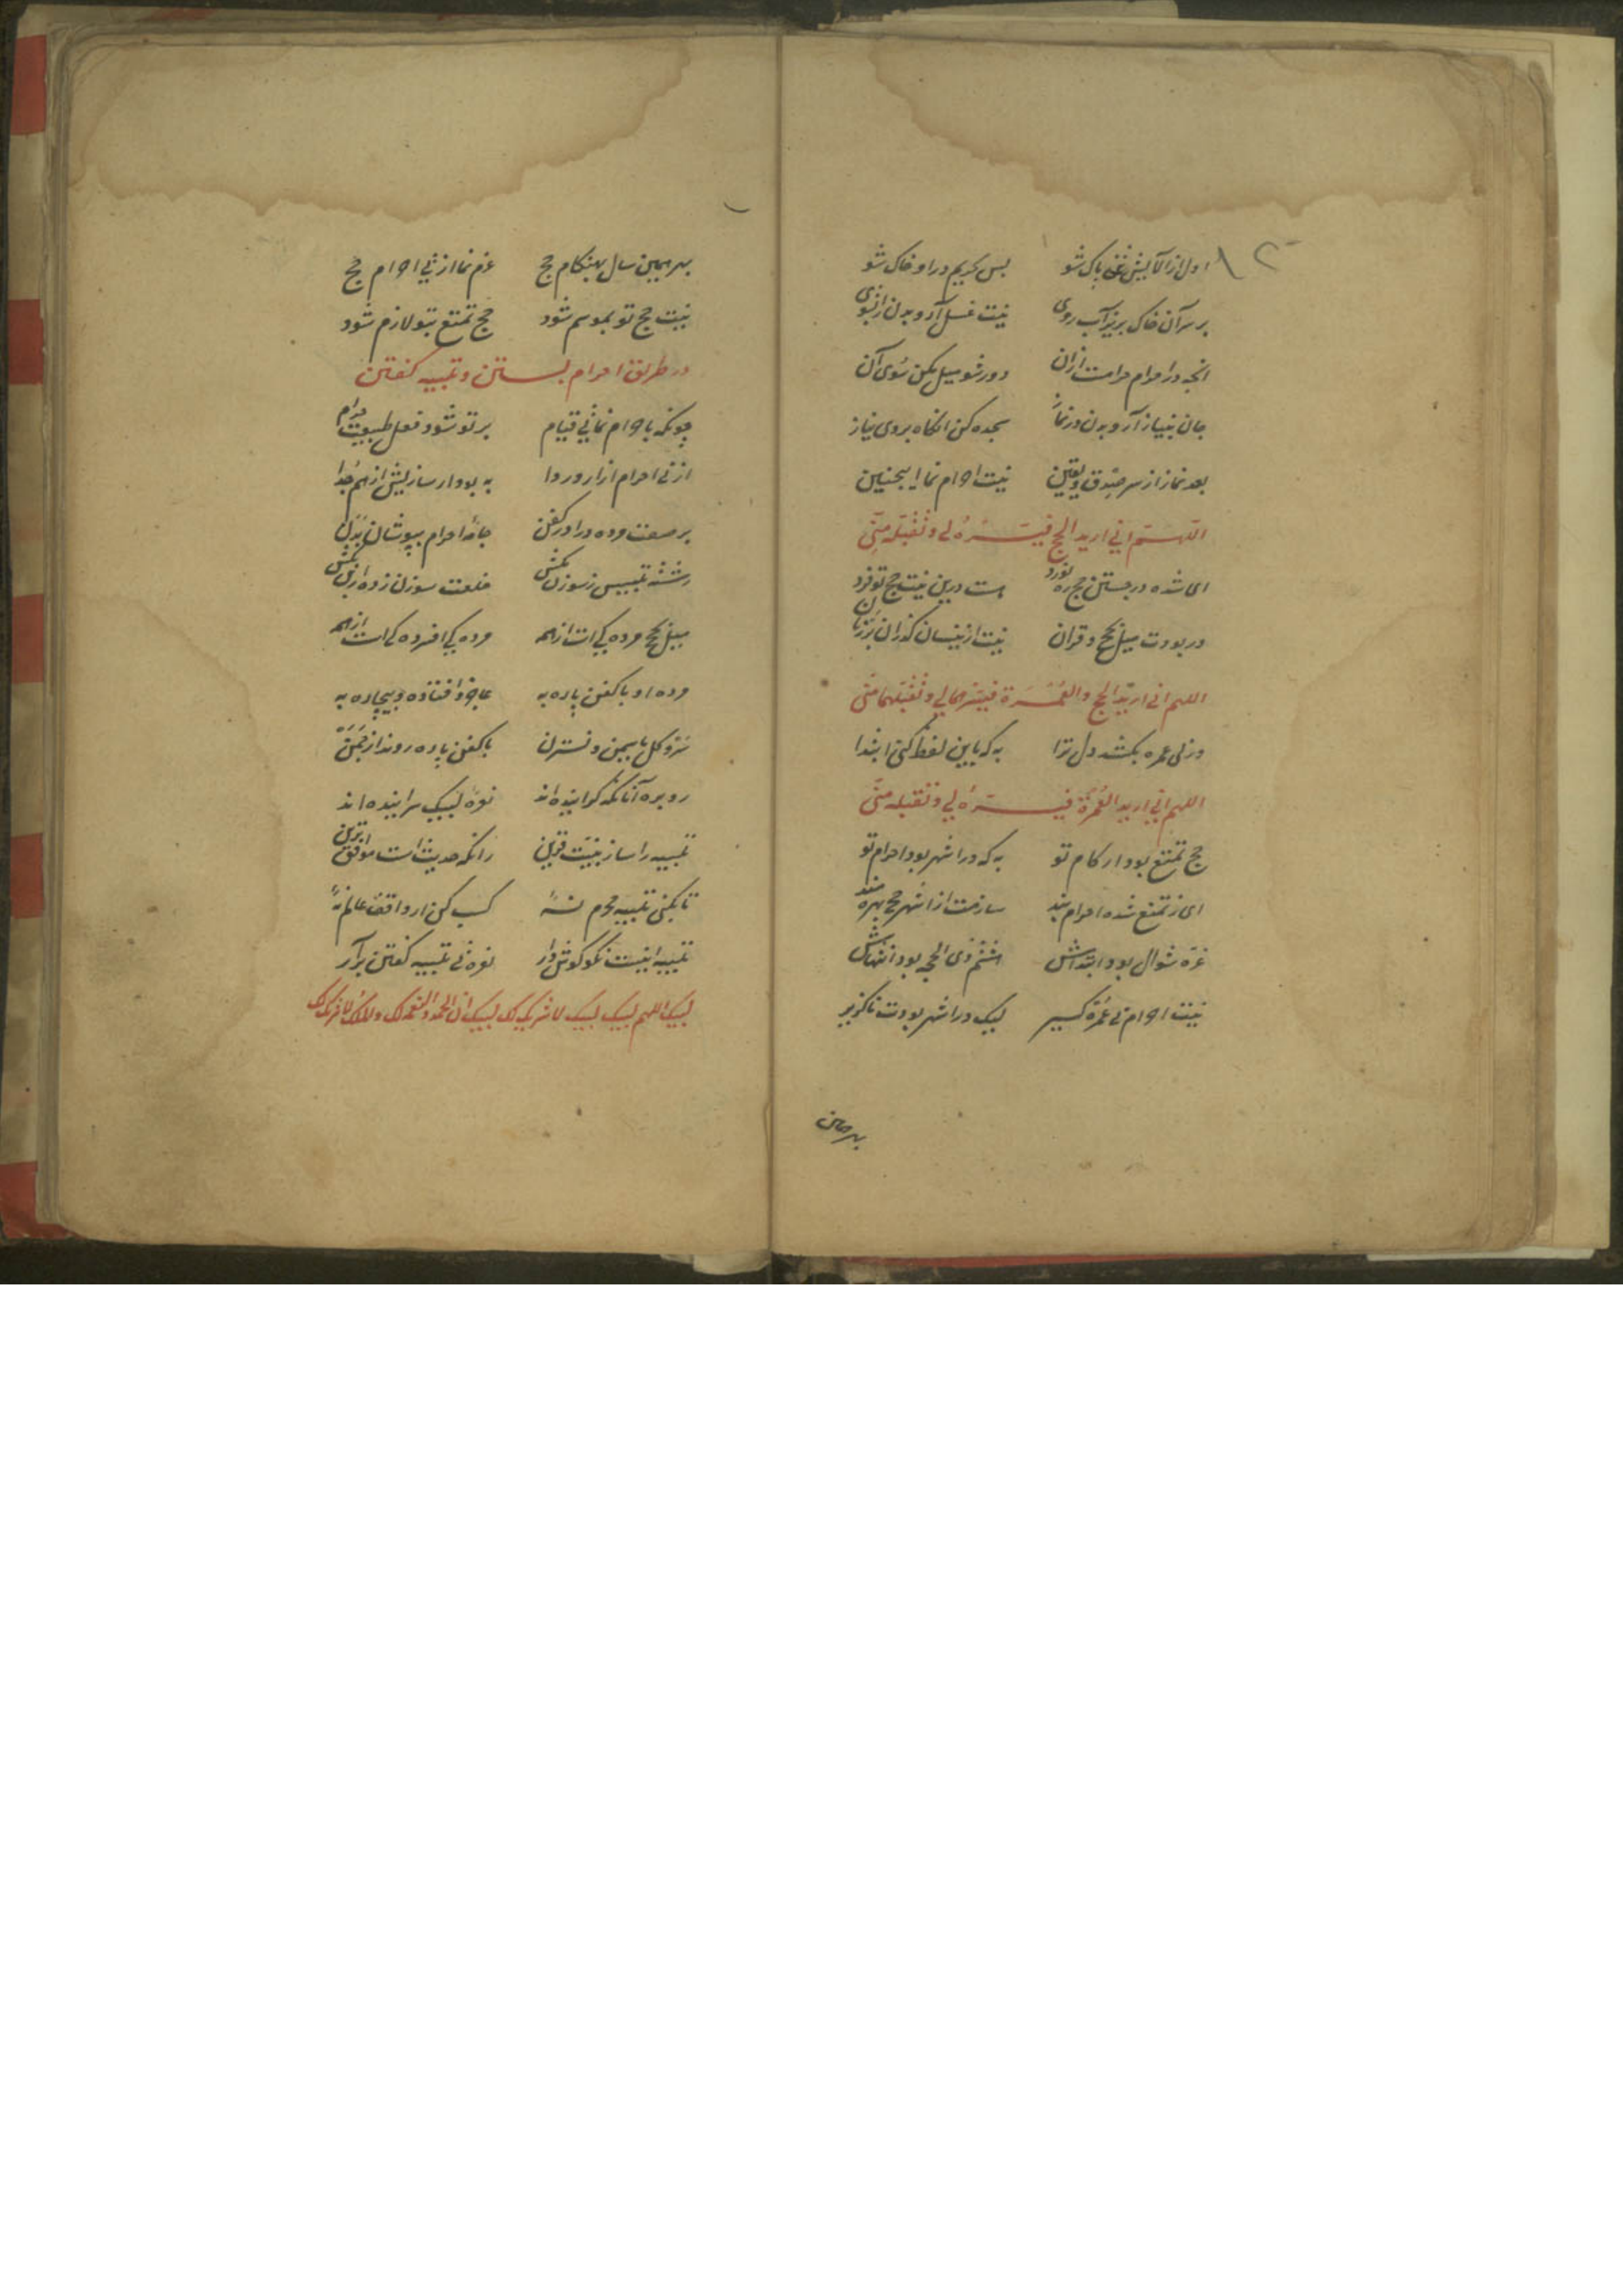 ۱۲
اول از آلایش تن پاک شو پس بحریم در او خاک شو
بر سر آن خاک بریز آب روی نیت غسل آر و بدن را بشوی
انچه در احرام حرامست ازان دور شو میل مکن سوی آن
جان بنیاز آر و بدن در نماز سجده کن انگاه بروی نیاز
بعد نماز از سر صدق و یقین نیت احرام نما اینچنین
اللهم انی ارید الحج فیسره لی و تقبله منی
ای شده در جستن حج ره نورد هست درین نیت حج تو فرد
ور بودت میل بحج و قران نیت ازینسان گذران بر زبان
اللهم انی ارید الحج والعمرة فیسرهما لی و تقبلهما منی
ور پی عمره بکشد دل ترا به که باین لفظ کنی ابتدا
اللهم انی ارید العمرة فیسره لی و تقبله منی
حج تمتع بود ار کام تو به که در اشهر بود احرام تو
ای ز تمتع شده احرام بند سازمت از اشهر حج بهره مند
غره شوال بود ابتداش ششم ذی الحجه بود انتهاش
نیت احرام پی عمره گیر لیک در اشهر بودت ناگزیر
بهر همین
بهر همین سال بهنگام حج عزم نما از پی احرام حج
نیت حج تو بموسم شود حج تمتع بتو لازم شود
در طریق احرام بستن و تلبیه گفتن
چونکه باحرام نمائی قیام بر تو شود فعل طبیعت حرام
از پی احرام ازار و ردا به بود ار سازیش از هم جدا
بر صفت مرده در آور کفن جامهٔ احرام بپوشان بدن
رشته تلبیس ز سوزن بکش خلعت سوزن زده از تن بکش
میل بحج مرده کی است از همه مرده کی افسرده کی است از همه
مرده او با کفن پاره به عاجز و افتاده و بیچاره به
سرو و گل و یاسمن و نسترن با کفن پاره روند از چمن
رو بره آنانکه گراینده اند نعره لبیک سراینده اند
تلبیه را ساز بنیت قرین زانکه حدیث است موافق برین
تا نکنی تلبیه محرم نهٔ کسب کن ار واقف عالم نهٔ
تلبیه اینست نکو گوش دار نعره پی تلبیه گفتن برآر
لبیک اللهم لبیک لبیک لا شریک لک لبیک ان الحمد والنعمة لک والملک لا شریک لک